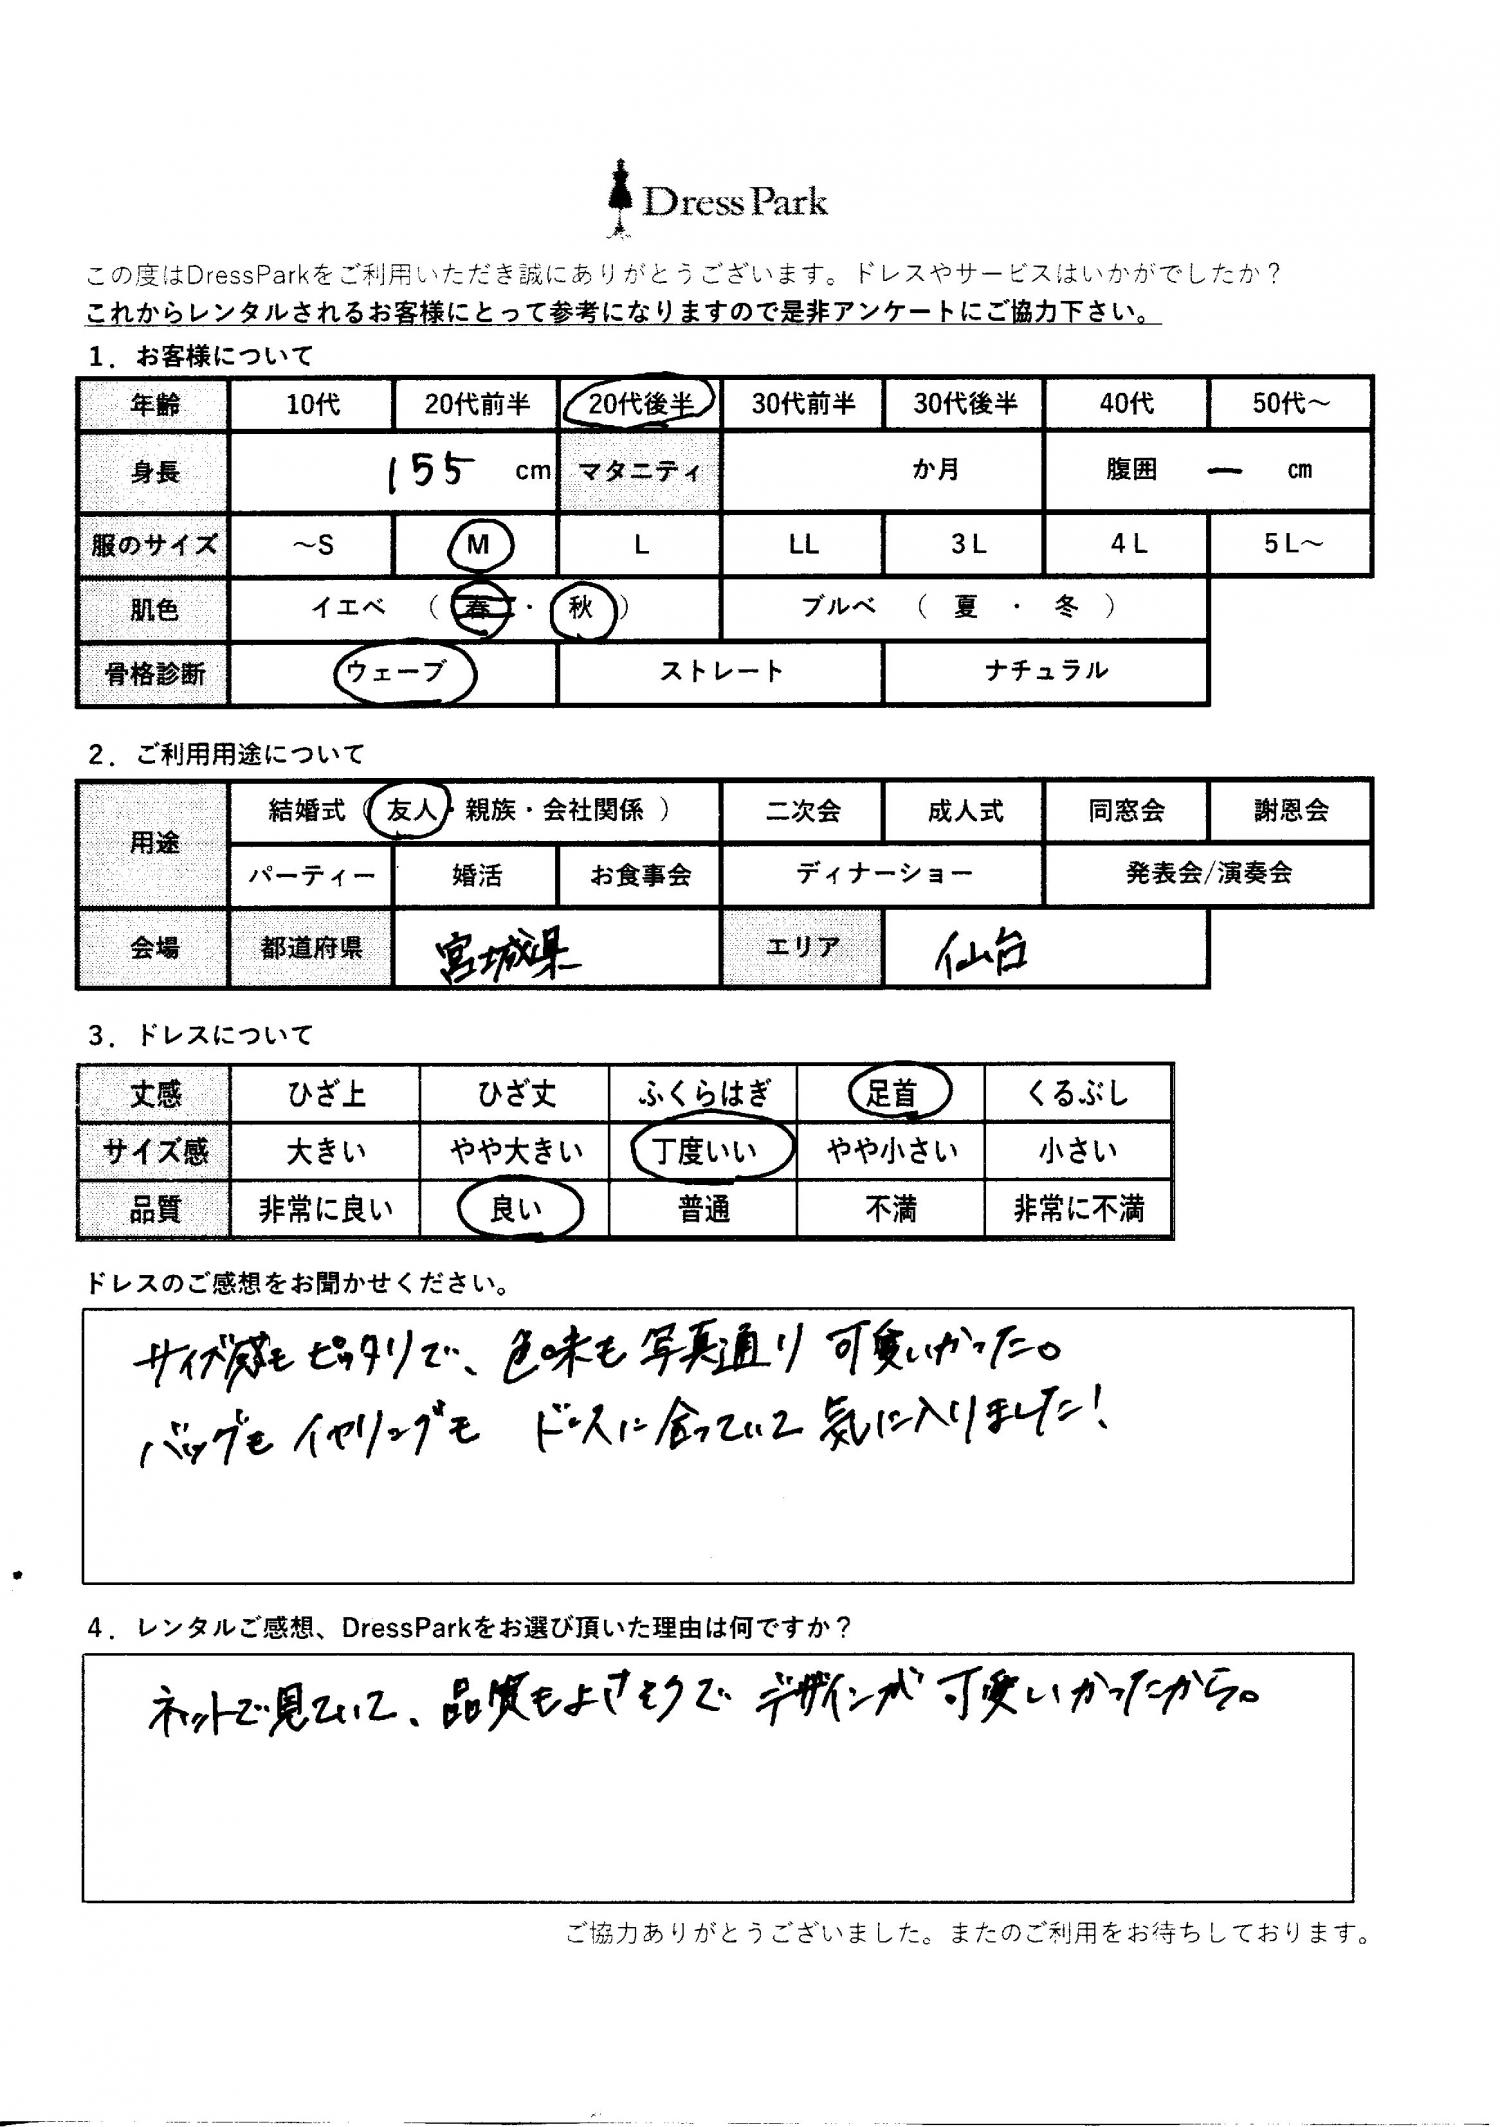 DressPark
この度はDressParkをご利用いただき誠にありがとうございます。ドレスやサービスはいかがでしたか？
これからレンタルされるお客様にとって参考になりますので是非アンケートにご協力下さい。
1．お客様について
年齢 10代 20代前半 20代後半 30代前半 30代後半 40代 50代～
身長 155 cm マタニティ か月 腹囲 ー cm
服のサイズ ～S M L LL 3L 4L 5L～
肌色 イエベ （ 春 ・ 秋 ） ブルベ （ 夏 ・ 冬 ）
骨格診断 ウェーブ ストレート ナチュラル
2．ご利用用途について
用途 結婚式（ 友人・親族・会社関係 ） 二次会 成人式 同窓会 謝恩会
パーティー 婚活 お食事会 ディナーショー 発表会/演奏会
会場 都道府県 宮城県 エリア 仙台
3．ドレスについて
丈感 ひざ上 ひざ丈 ふくらはぎ 足首 くるぶし
サイズ感 大きい やや大きい 丁度いい やや小さい 小さい
品質 非常に良い 良い 普通 不満 非常に不満
ドレスのご感想をお聞かせください。
サイズ感もピッタリで、色味も写真通り可愛いかった。
バッグもイヤリングも ドレスに合っていて気に入りました！
4．レンタルご感想、DressParkをお選び頂いた理由は何ですか？
ネットで見ていて、品質もよさそうで デザインが可愛いかったから。
ご協力ありがとうございました。またのご利用をお待ちしております。